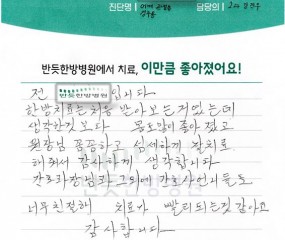 진단명
담당의
반듯한방병원에서 치료, 이만큼 좋아졌어요!
전 반듯한방병원 입니다
한방치료는 처음 받아보는거였는데
생각한것보다 몸도많이좋아졌고
원장님 꼼꼼하고 섬세하게 잘치료
해줘서 감사하게 생각합니다
간호과장님과 그외에 간호사언니들도
너무친절하 치료가 빨리되는것같아요
감사합니다